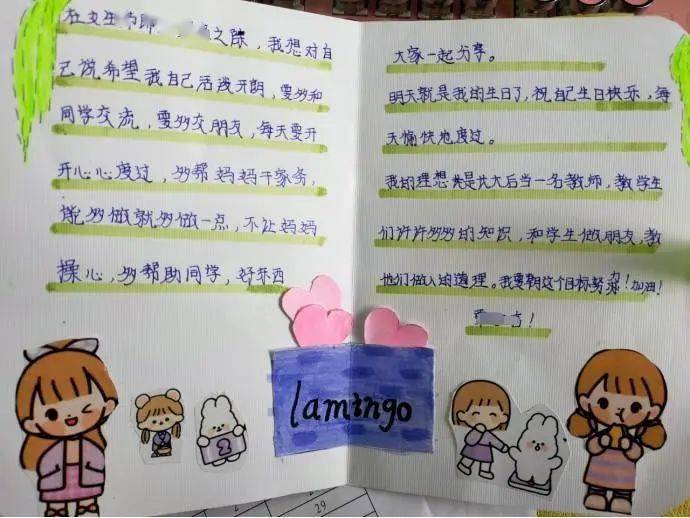 在女生节
之际，我想对自
己说希望我自己活泼开朗，要多和
同学交流，要多交朋友，每天要开
开心心度过，多帮妈妈干家务，
能多做就多做一点，不让妈妈
操心，多帮助同学，好东西
大家一起分享。
明天就是我的生日了，祝自己生日快乐，每
天愉快地度过。
我的理想是长大后当一名教师，教学生
们许许多多的知识，和学生做朋友，教
他们做人的道理。我要朝这个目标努力！加油！
lamingo
2
29